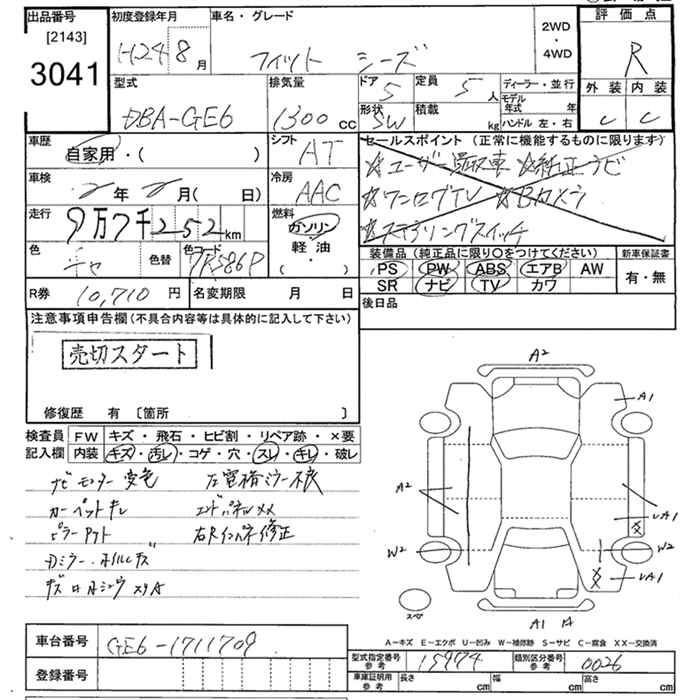 出品番号 初度登録年月 車名・グレード 評価点
[2143] H24 8月 フィット シーズ 2WD・4WD R
3041
型式 排気量 ドア 定員 ディーラー・並行 外装 内装
DBA-GE6 1300cc 5 5人 モデル年式 年 C C
形状 積載 ハンドル 左・右
SW kg
車歴 シフト セールスポイント (正常に機能するものに限ります)
自家用・( ) AT ☆ユーザー買取車 ☆純正ナビ
車検 冷房 ☆ワンセグTV ☆Bカメラ
年 月( 日) AAC ☆ステアリングスイッチ
走行 燃料
9万7千252km ガソリン
色 色替 色コード 軽油 装備品 (純正品に限り○をつけてください) 新車保証書
( ・ ) PS PW ABS エアB AW 有・無
SR ナビ TV カワ
R券 10,710円 名変期限 月 日 後日品
注意事項申告欄(不具合内容等は具体的に記入して下さい)
売切スタート
修復歴 有 [箇所 ]
検査員記入欄 FW キズ・飛石・ヒビ割・リペア跡・×要
内装 キズ・汚レ・コゲ・穴・スレ・キレ・破レ
ナビモニター変色 左電格ミラー不良
カーペットキレ エンドパネルXX
右Rインパネ修正
A2
A1
A2
UA1
W2 W2
UA1
スペア
A1
A-キズ E-エクボ U-凹み W-補修跡 S-サビ C-腐食 XX-交換済
車台番号 GE6-1711709
登録番号
型式指定番号 参考 15974 類別区分番号 参考 0026
車庫証明用 参考 長さ cm 幅 cm 高さ cm